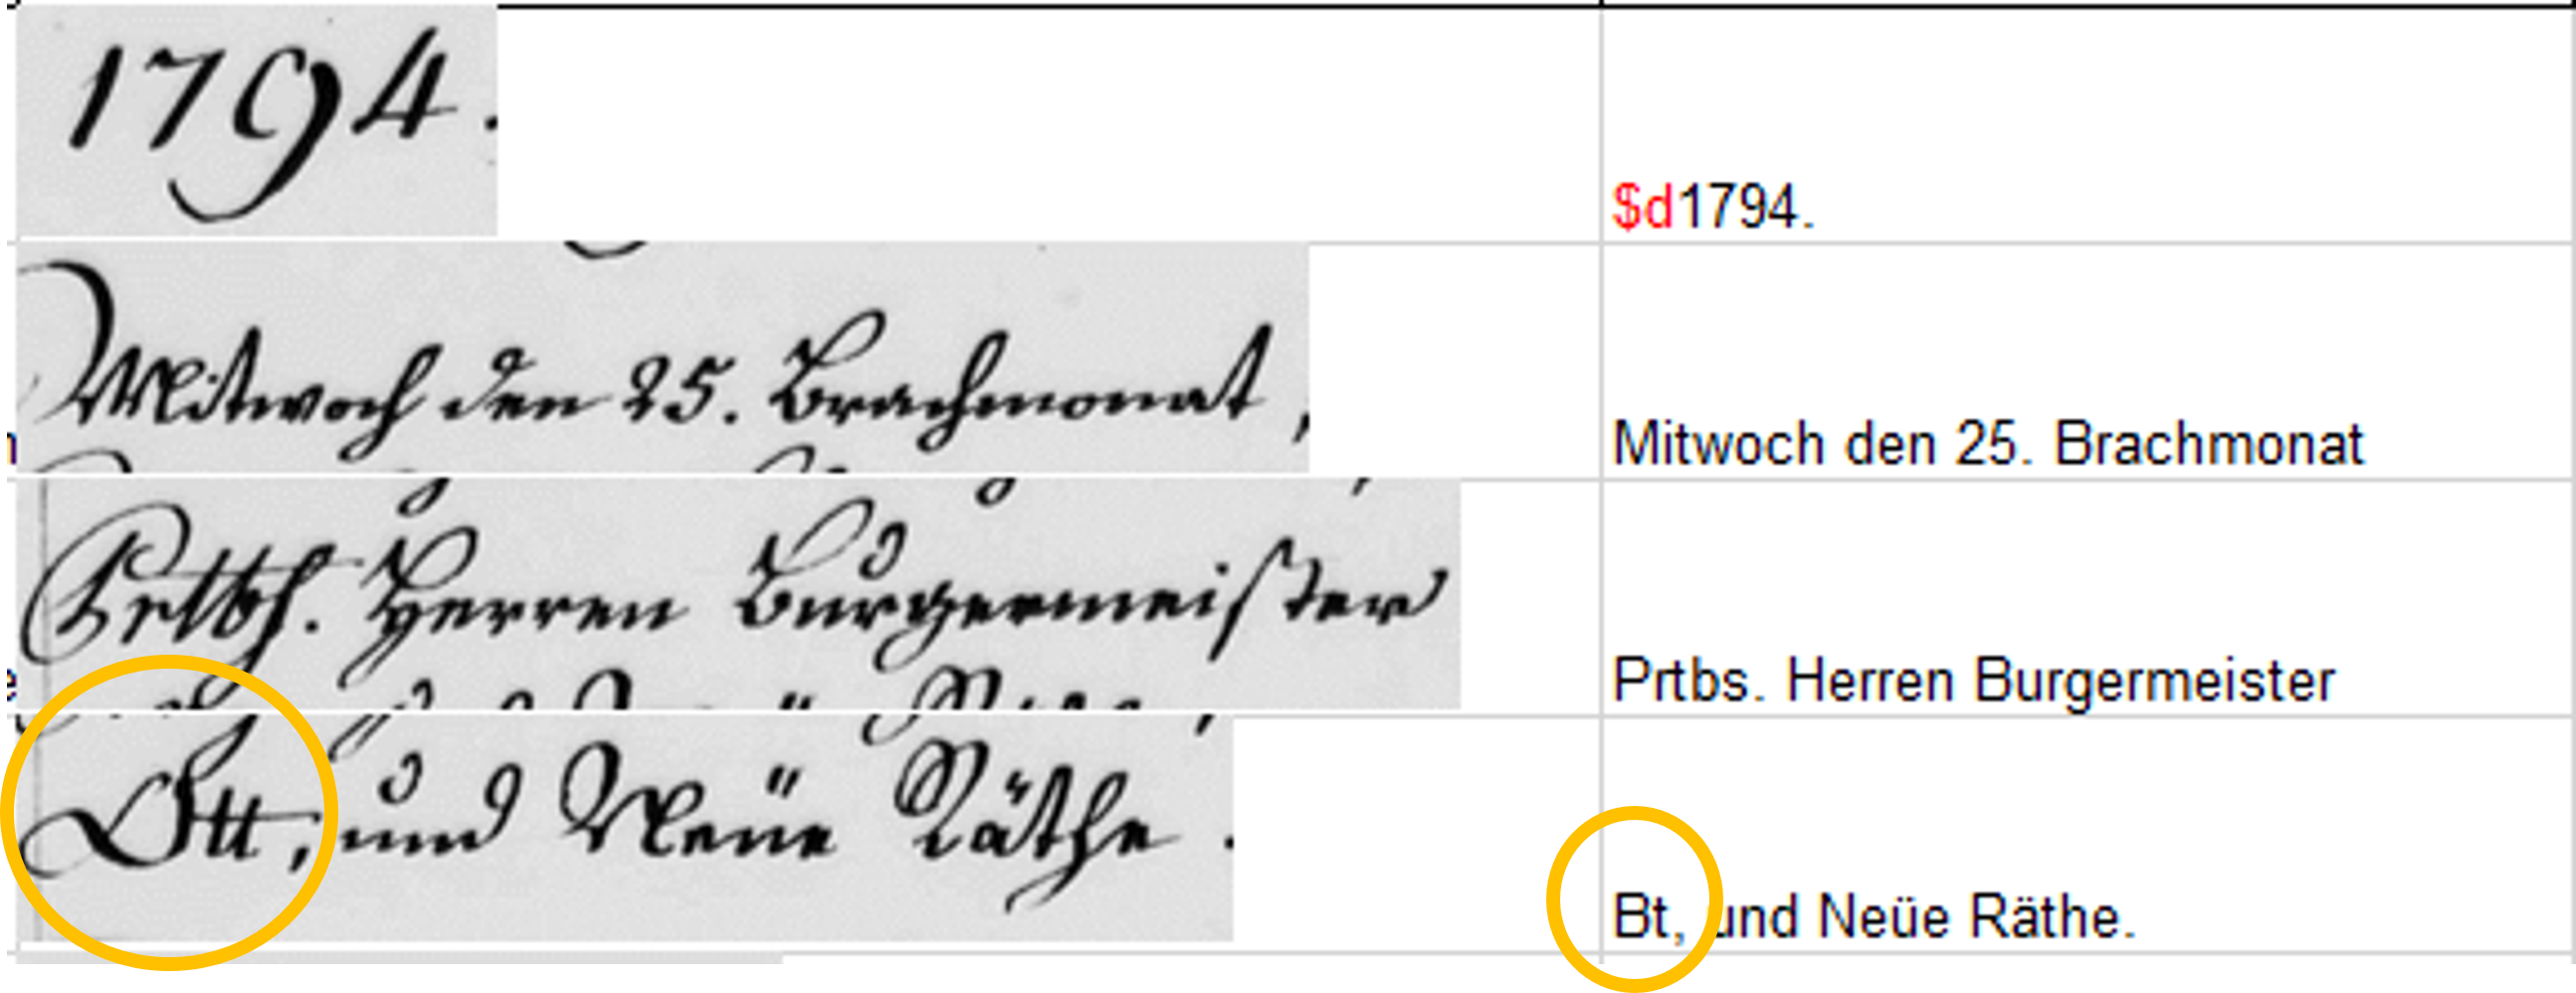 1794.
$d1794.
Mitwoch den 25. Brachmonat,
Mitwoch den 25. Brachmonat
Prtbs. Herren Burgermeister
Prtbs. Herren Burgermeister
und Neüe Räthe.
Bt, und Neüe Räthe.